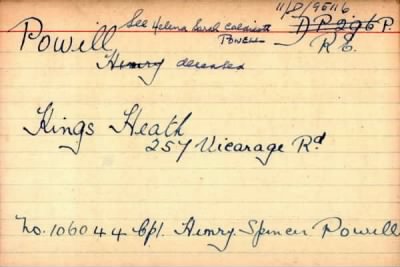 11/D/95116
See Helena Sarah Caldicott D.P. 296 P.
Powell POWELL R E.
Henry deceased
Kings Heath
257 Vicarage Rd
No. 106044 Cpl. Henry Spencer Powell